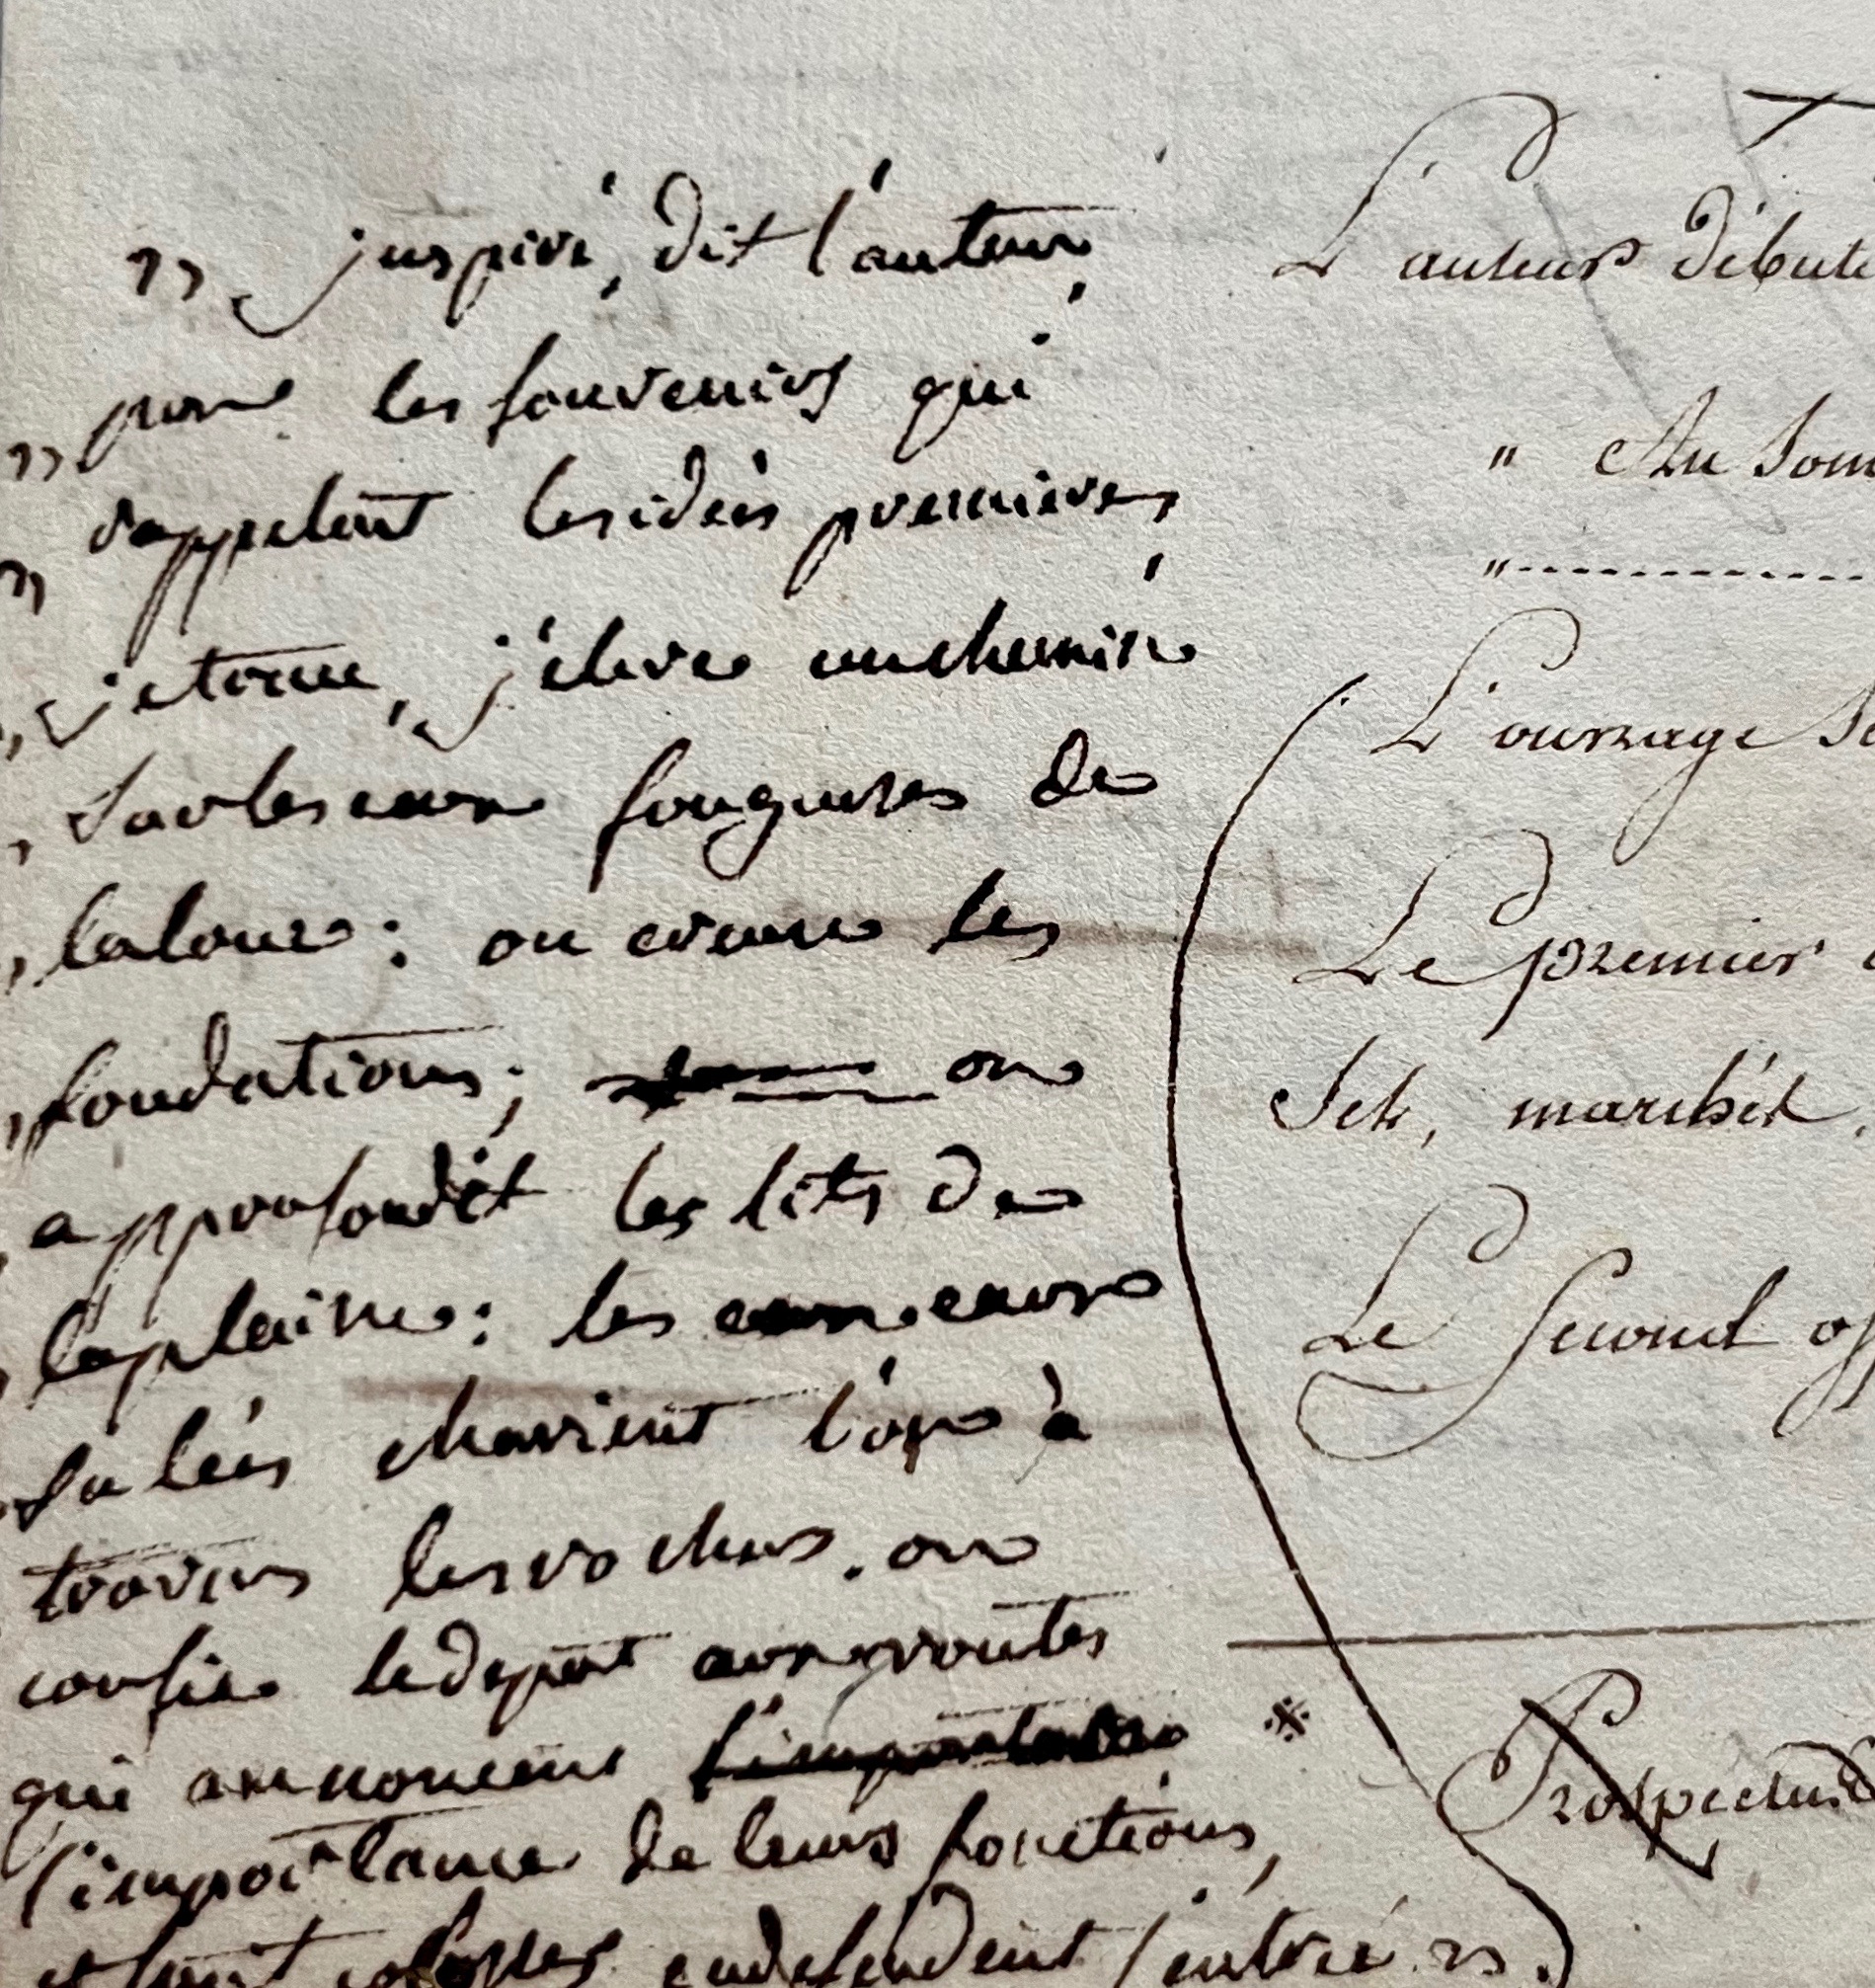 " juspiré, dit l'auteur,
" pour les souvenirs qui
" rappelent les idées premieres,
" jetonne, j'éleve un chemin
" sur les eaux fougueuses de
" la loue: on creuse les
" fondations; on
" approfondit les lits de
" la plaine: les eaux
" salées charient l'or à
travers les rochers. on
confie le depot aux voutes
qui annoncent
l'importance de leurs fonctions,
et sont colosses endefendent l'entrée ".
L'auteur débute
" Au Som
"
L'ouvrage Se
Le premier
Sel, marchét,
Le Second off
Prospectus